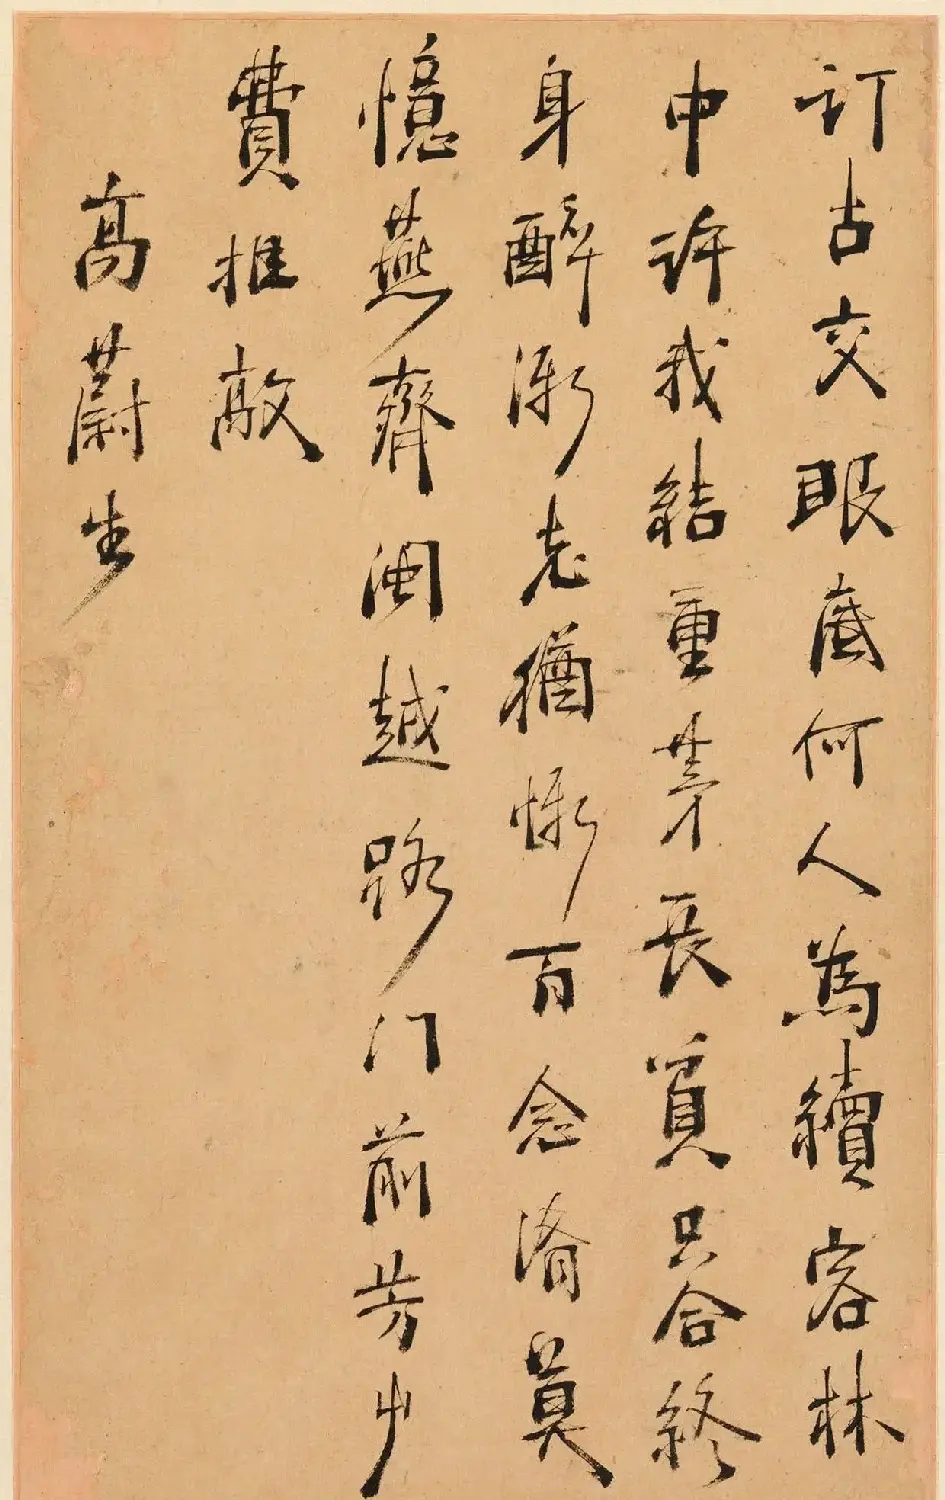 訂古交眼底何人為續容林
中許我結重茅長貧只合終
身醉漸老猶慚百念淆莫
憶燕齊閩越路門前芳屮
費推敲
高蔚生